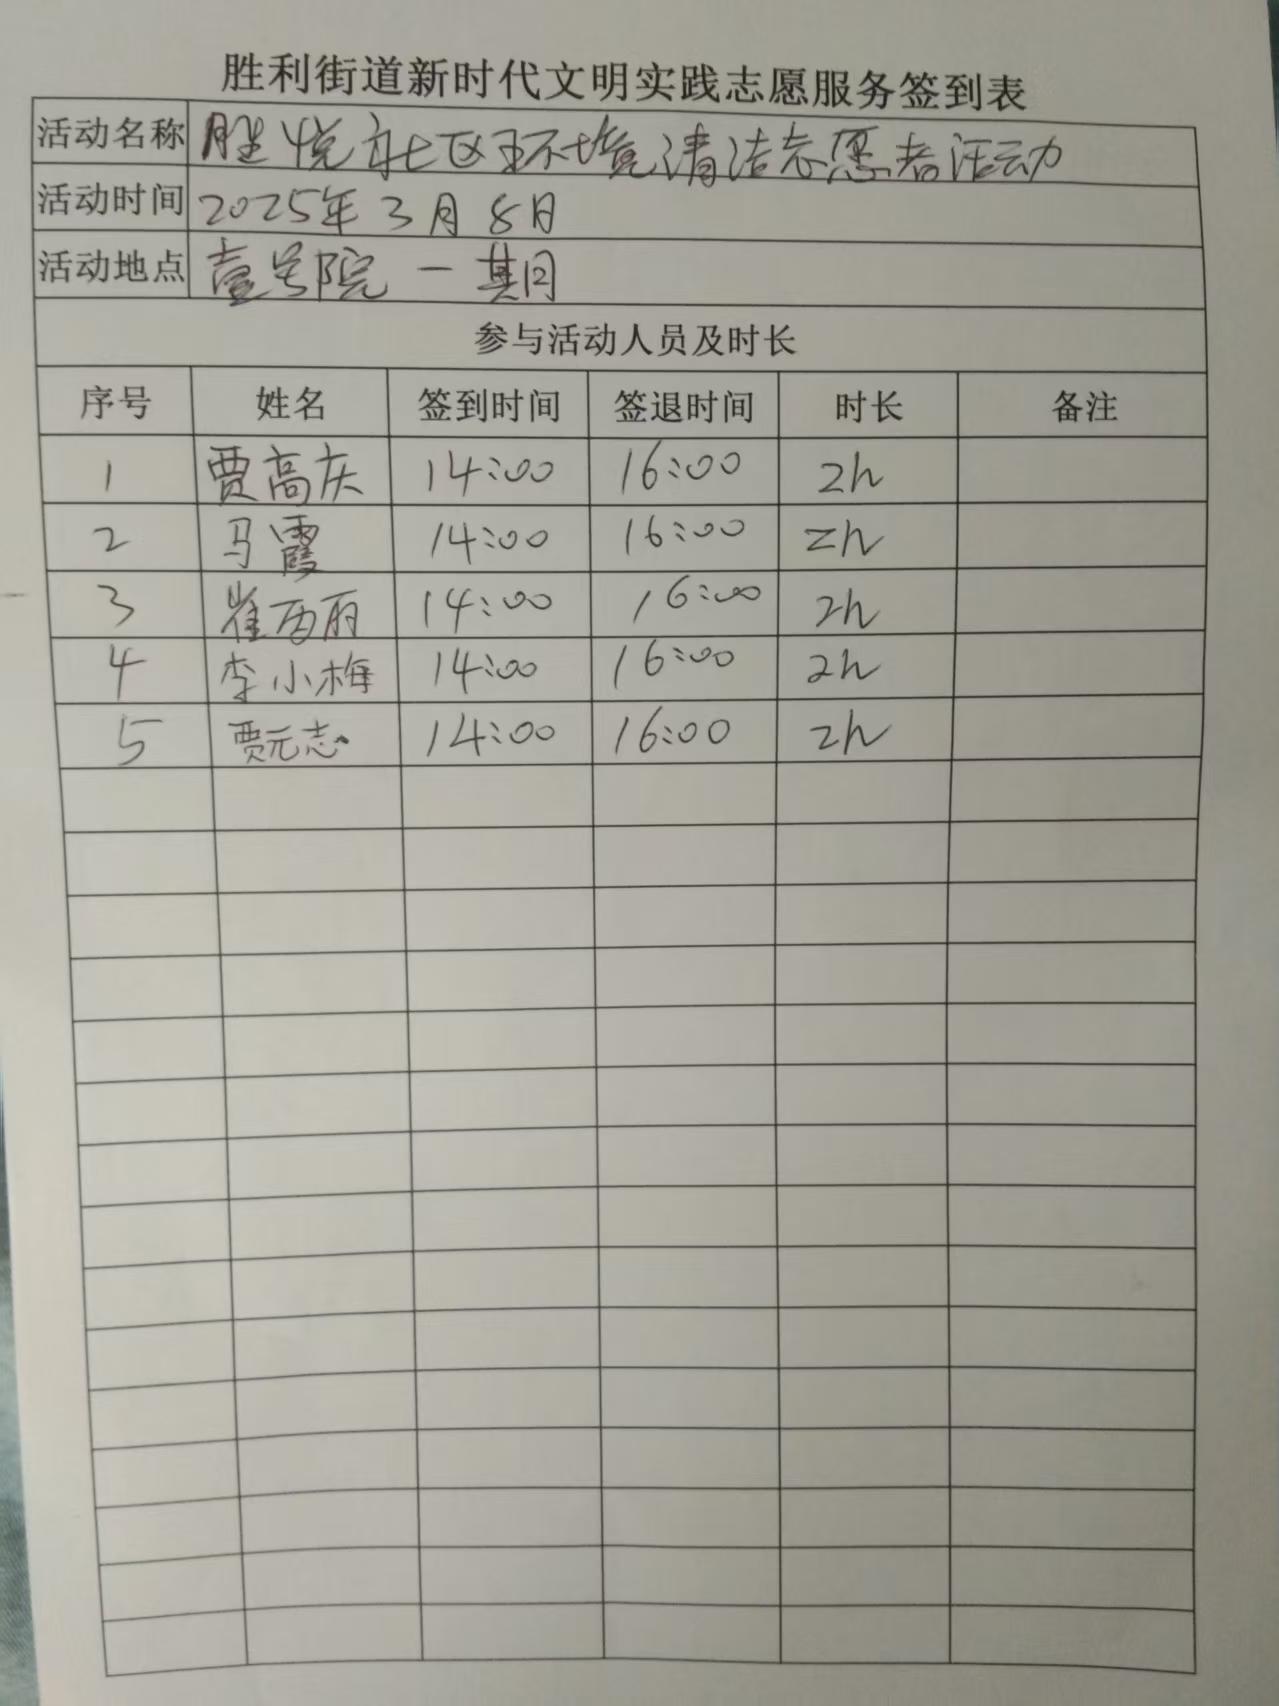 胜利街道新时代文明实践志愿服务签到表
活动名称 胜悦社区环境清洁志愿者活动
活动时间 2025年3月8日
活动地点 壹号院一期
参与活动人员及时长
序号 姓名 签到时间 签退时间 时长 备注
1 贾高庆 14:00 16:00 2h
2 马霞 14:00 16:00 2h
3 崔西丽 14:00 16:00 2h
4 李小梅 14:00 16:00 2h
5 贾元志 14:00 16:00 2h